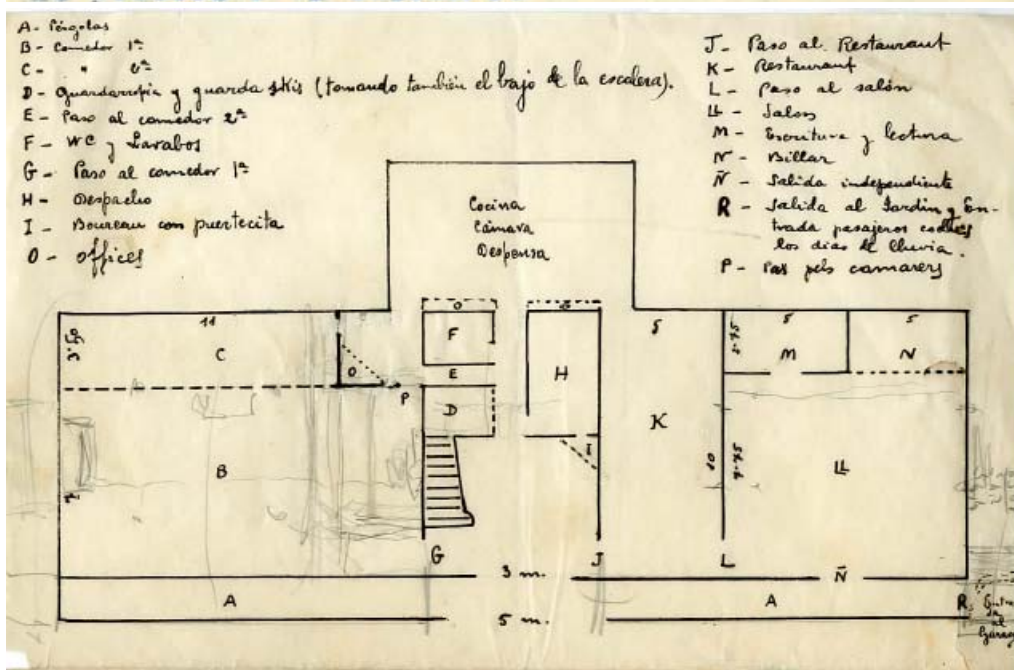 A - Pérgolas
B - Comedor 1ª
C - " 2ª
D - Guardarropía y guarda skis (tomando también el bajo de la escalera).
E - Paso al comedor 2ª
F - WC y Lavabos
G - Paso al comedor 1ª
H - Despacho
I - Boureau con puertecita
O - Offices
J - Paso al Restaurant
K - Restaurant
L - Paso al salón
LL - Salon
M - Escritura y lectura
N - Billar
Ñ - Salida independiente
R - Salida al Jardin y En-
trada pasajeros coches
los dias de lluvia.
P - Pas pels camarers
Cocina
Cámara
Despensa
11
C
O
P
B
O
F
E
D
G
H
I
J
5
K
10
L
5
M
5
N
LL
Ñ
3 m.
A
5 m.
A
R
al